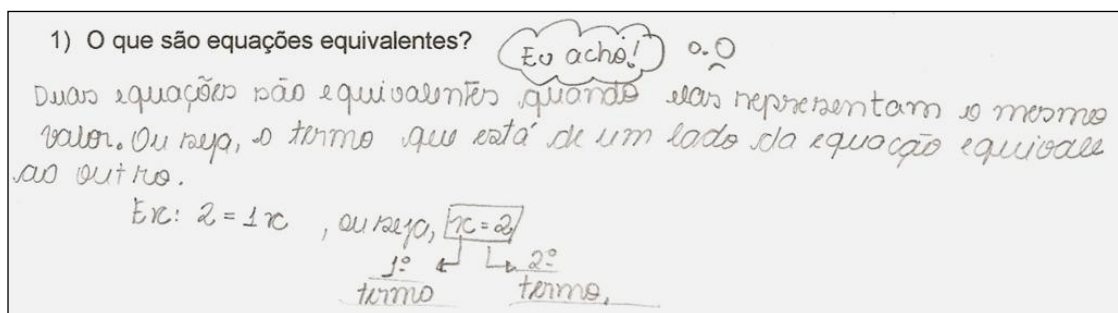 1) O que são equações equivalentes? Eu acho!
Duas equações são equivalentes quando elas representam o mesmo
valor. Ou seja, o termo que está de um lado da equação equivale
ao outro.
Ex: 2 = 1x , ou seja, x = 2
1º termo 2º termo.